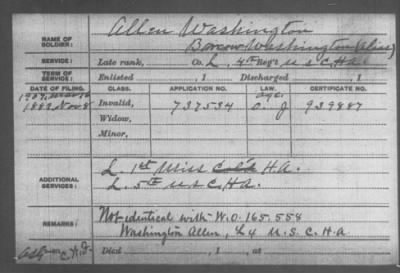 NAME OF SOLDIER: Allen Washington
Washington (alias)
SERVICE: Late rank, Co. L, 4th Reg't U.S.C.H.A.
TERM OF SERVICE: Enlisted , 1 Discharged , 1
DATE OF FILING. CLASS. APPLICATION NO. LAW. CERTIFICATE NO.
1889, Nov 8 Invalid, 737534 939887
Widow,
Minor,
ADDITIONAL SERVICES: L. 1st Miss Col'd H.A.
L. 5th U.S.C.H.A.
REMARKS: Not identical with W.O. 165.558
Washington Allen, L 4 U.S.C.H.A
Died , 1 , at